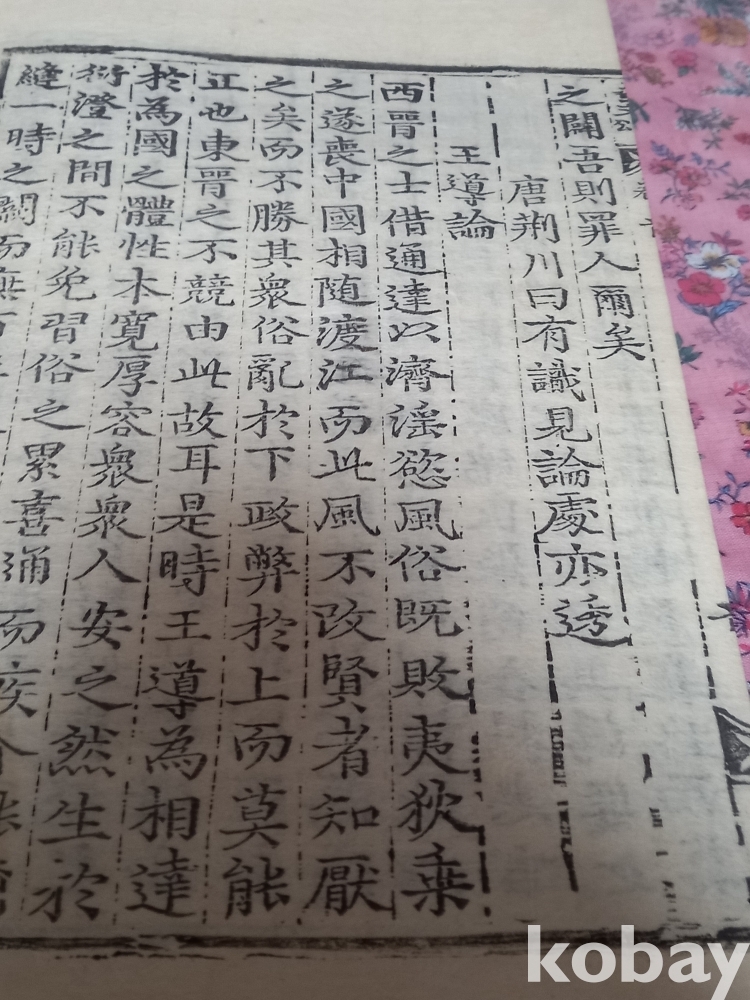 之闢吾則罪人爾矣
唐荆川曰有識見論處亦透
王導論
西晋之士借通達以濟淫慾風俗既敗夷狄乗
之遂喪中國相随渡江而此風不改賢者知厭
之矣而不勝其衆俗亂於下政弊於上而莫能
正也東晋之不競由此故耳是時王導為相達
於為國之體性本寛厚容衆衆人安之然生於
衍澄之間不能免習俗之累喜通而疾
縫一時之闕而
kobay